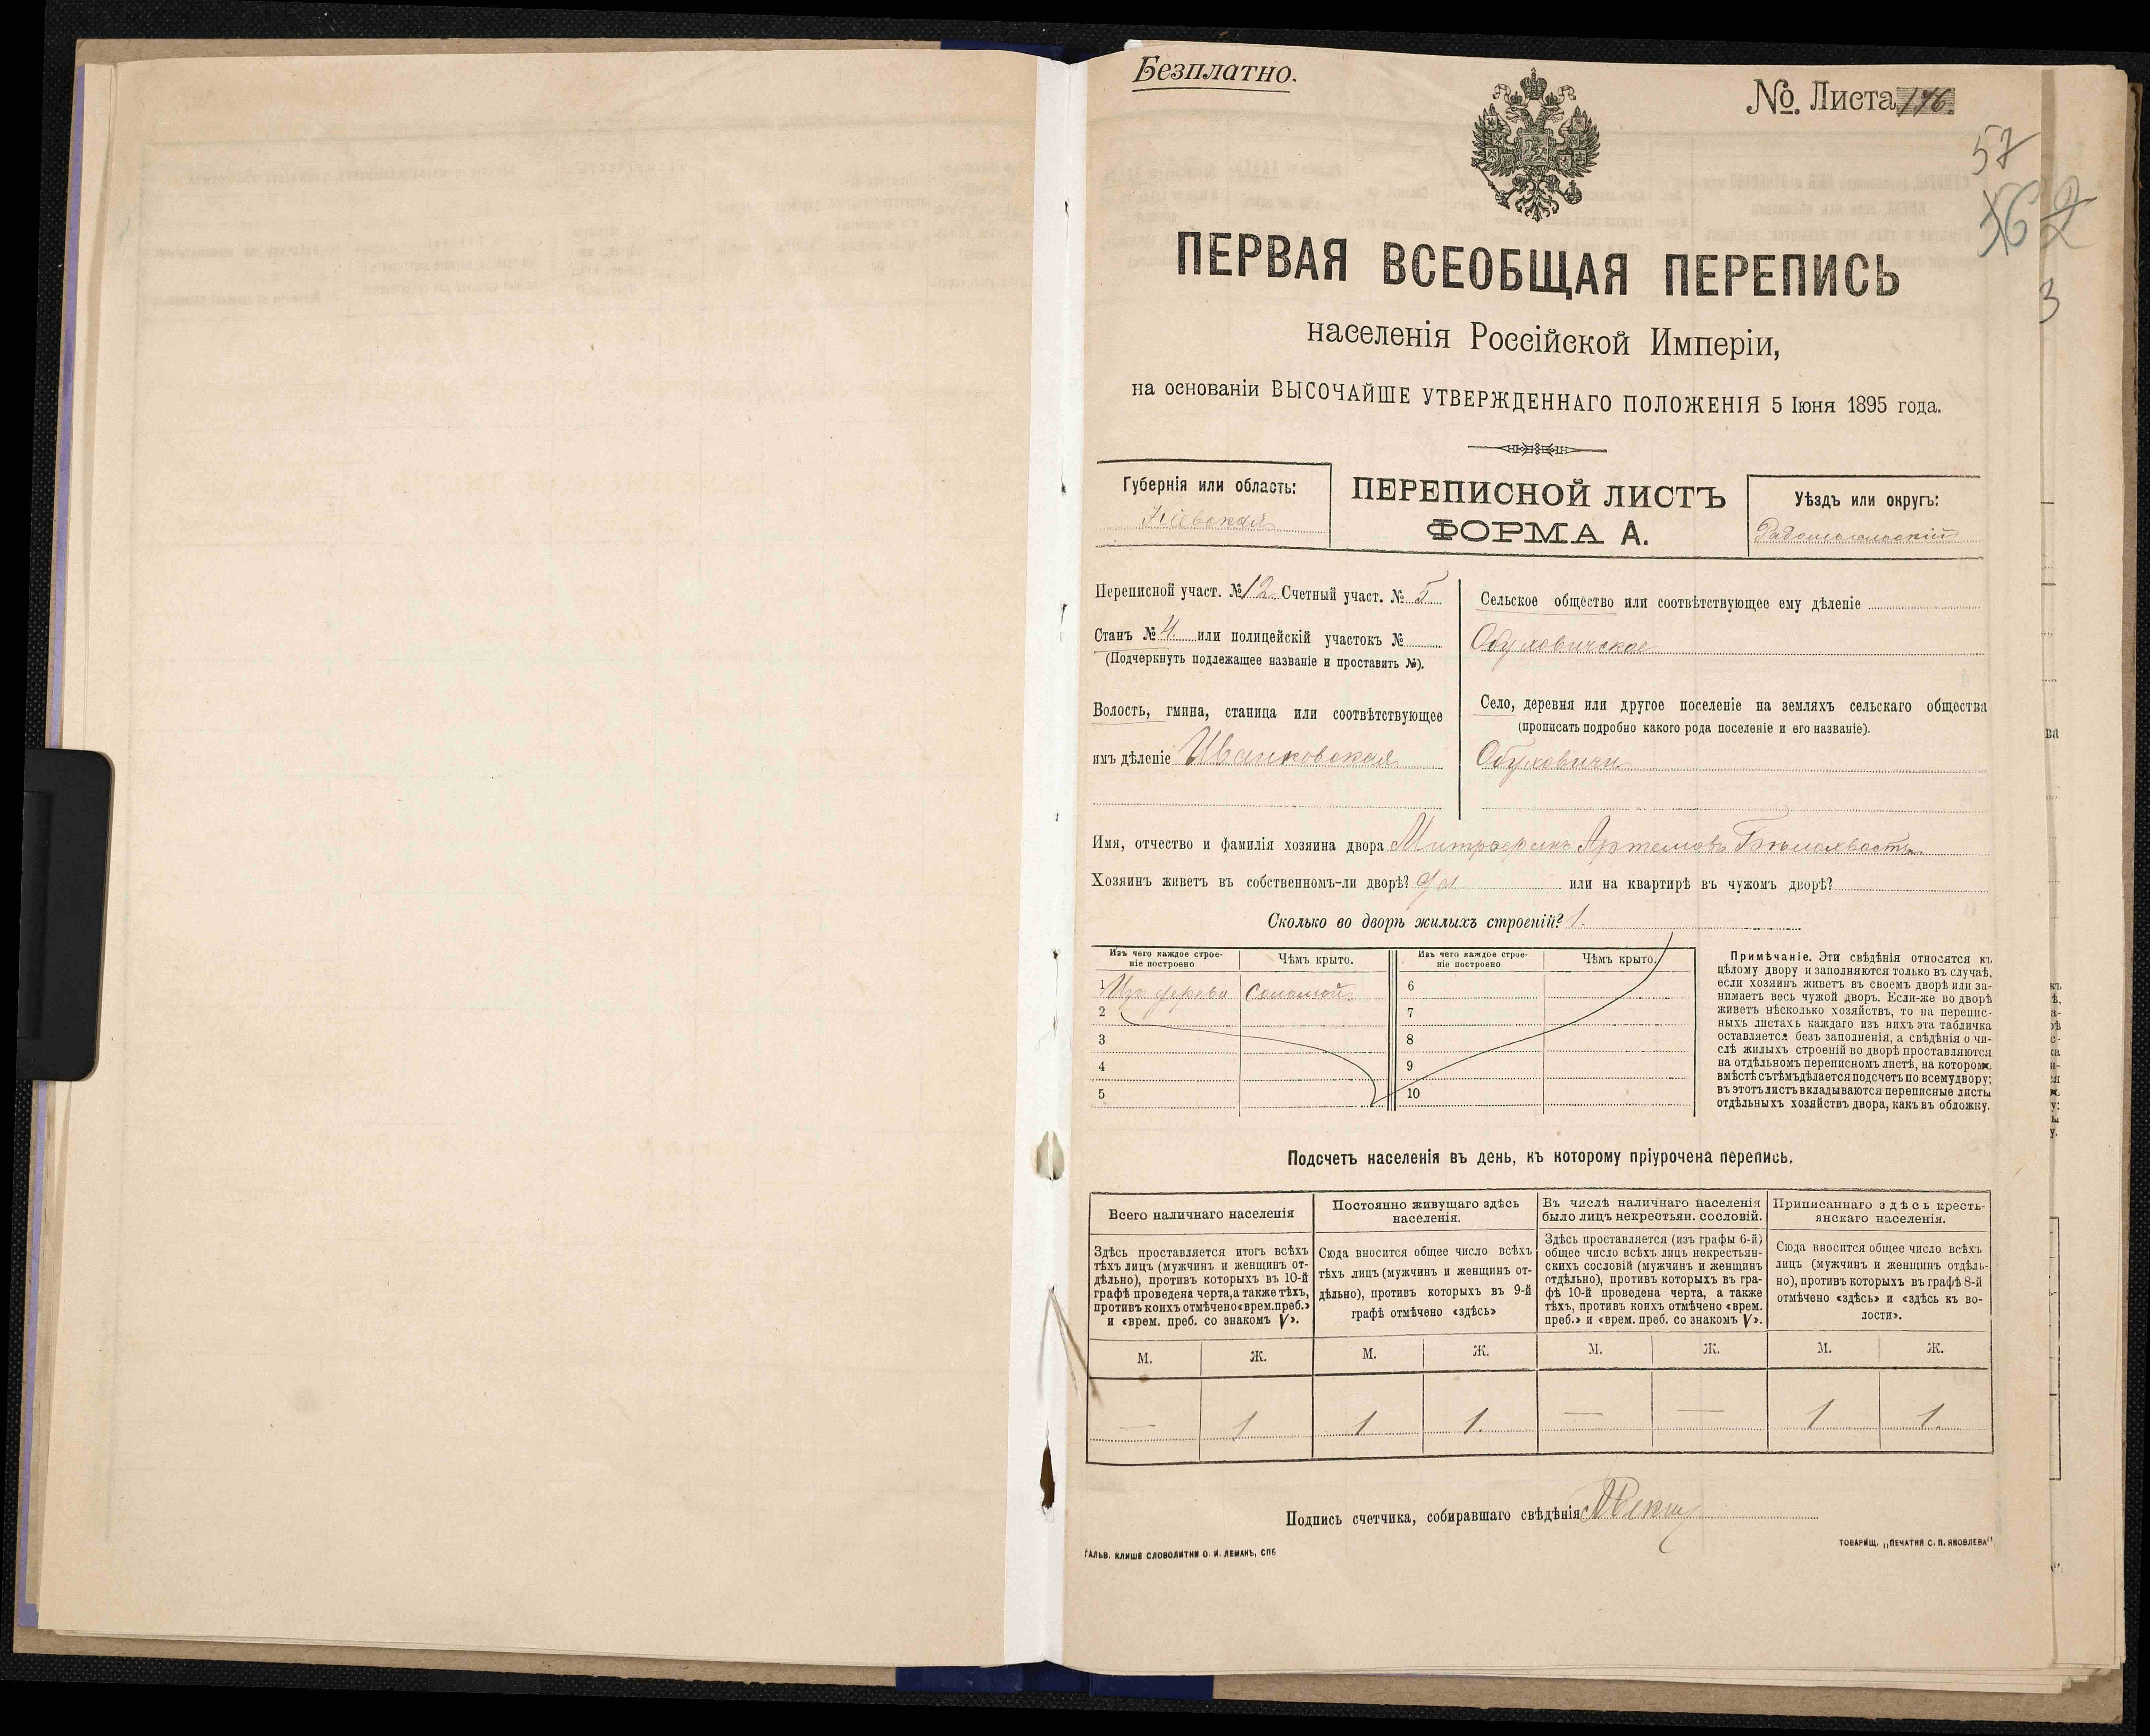 Безплатно.
№ Листа 176.
57
56 2
3
ПЕРВАЯ ВСЕОБЩАЯ ПЕРЕПИСЬ
населенія Россійской Имперіи,
на основаніи ВЫСОЧАЙШЕ УТВЕРЖДЕННАГО ПОЛОЖЕНІЯ 5 Іюня 1895 года.
Губернія или область:
Кіевская
ПЕРЕПИСНОЙ ЛИСТЪ
ФОРМА А.
Уѣздъ или округъ:
Радомысльскій
Переписной участ. № 12 Счетный участ. № 5
Станъ № 4. или полицейскій участокъ №
(Подчеркнуть подлежащее названіе и проставить №).
Волость, гмина, станица или соотвѣтствующее
имъ дѣленіе Иванковская
Сельское общество или соотвѣтствующее ему дѣленіе
Обуховичское
Село, деревня или другое поселеніе на земляхъ сельскаго общества
(прописать подробно какого рода поселеніе и его названіе).
Обуховичи
Имя, отчество и фамилія хозяина двора Митрофанъ Артемовъ Бѣлохвостъ
Хозяинъ живетъ въ собственномъ-ли дворѣ? Да или на квартирѣ въ чужомъ дворѣ?
Сколько во дворѣ жилыхъ строеній? 1.
Изъ чего каждое строе-
ніе построено
Чѣмъ крыто.
Изъ чего каждое строе-
ніе построено
Чѣмъ крыто.
1 Изъ дерева Соломой 6
2 7
3 8
4 9
5 10
Примѣчаніе. Эти свѣдѣнія относятся къ
цѣлому двору и заполняются только въ случаѣ,
если хозяинъ живетъ въ своемъ дворѣ или за-
нимаетъ весь чужой дворъ. Если-же во дворѣ
живетъ нѣсколько хозяйствъ, то на перепис-
ныхъ листахъ каждаго изъ нихъ эта табличка
оставляется безъ заполненія, а свѣдѣнія о чи-
слѣ жилыхъ строеній во дворѣ проставляются
на отдѣльномъ переписномъ листѣ, на которомъ
вмѣстѣ съ тѣмъ дѣлается подсчетъ по всему двору;
въ этотъ листъ вкладываются переписные листы
отдѣльныхъ хозяйствъ двора, какъ въ обложку.
Подсчетъ населенія въ день, къ которому пріурочена перепись.
Всего наличнаго населенія
Здѣсь проставляется итогъ всѣхъ
тѣхъ лицъ (мужчинъ и женщинъ от-
дѣльно), противъ которыхъ въ 10-й
графѣ проведена черта, а также тѣхъ,
противъ коихъ отмѣчено «врем. преб.»
и «врем. преб. со знакомъ V».
Постоянно живущаго здѣсь
населенія.
Сюда вносится общее число всѣхъ
тѣхъ лицъ (мужчинъ и женщинъ от-
дѣльно), противъ которыхъ въ 9-й
графѣ отмѣчено «здѣсь»
Въ числѣ наличнаго населенія
было лицъ некрестьян. сословій.
Здѣсь проставляется (изъ графы 6-й)
общее число всѣхъ лицъ некрестьян-
скихъ сословій (мужчинъ и женщинъ
отдѣльно), противъ которыхъ въ гра-
фѣ 10-й проведена черта, а также
тѣхъ, противъ коихъ отмѣчено «врем.
преб.» и «врем. преб. со знакомъ V».
Приписаннаго здѣсь кресть-
янскаго населенія.
Сюда вносится общее число всѣхъ
лицъ (мужчинъ и женщинъ отдѣль-
но), противъ которыхъ въ графѣ 8-й
отмѣчено «здѣсь» и «здѣсь къ во-
лости».
М. Ж. М. Ж. М. Ж. М. Ж.
— 1 1 1. — — 1 1.
Подпись счетчика, собиравшаго свѣдѣнія
ГАЛЬВ. КЛИШЕ СЛОВОЛИТНИ О. И. ЛЕМАНЪ, СПБ
ТОВАРИЩ. „ПЕЧАТНЯ С. П. ЯКОВЛЕВА"